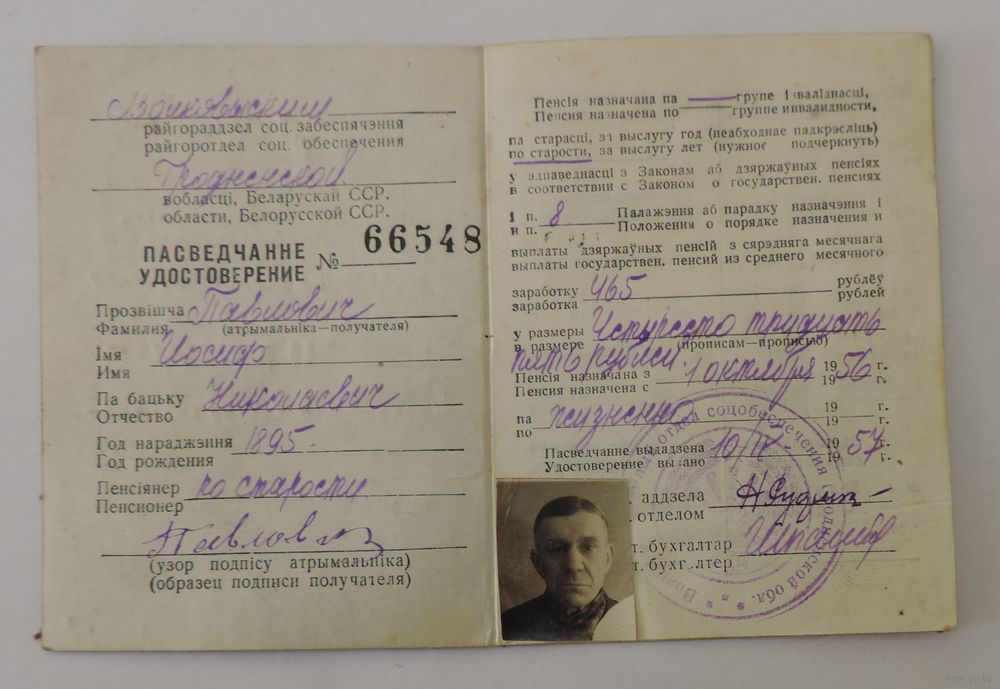 Волковыским
райгораддзел соц. забеспячэння
райгоротдел соц. обеспечения
Гродненской
вобласці, Беларускай ССР.
области, Белорусской ССР.
ПАСВЕДЧАННЕ
УДОСТОВЕРЕНИЕ
№ 66548
Прозвішча Павлович
Фамилия (атрымальніка—получателя)
Імя Иосиф
Имя
Па бацьку Николаевич
Отчество
Год нараджэння 1895.
Год рождения
Пенсіянер по старости
Пенсионер
Павлович
(узор подпісу атрымальніка)
(образец подписи получателя)
Пенсія назначана па — групе інваліднасці,
Пенсия назначена по группе инвалидности,
па старасці, за выслугу год (неабходнае падкрэсліць)
по старости, за выслугу лет (нужное подчеркнуть)
у адпаведнасці з Законам аб дзяржаўных пенсіях
в соответствии с Законом о государствен. пенсиях
і п. 8 Палажэння аб парадку назначэння і
и п. Положения о порядке назначения и
выплаты дзяржаўных пенсій з сярэдняга месячнага
выплаты государствен. пенсий из среднего месячного
заработку 465 рублёў
заработка рублей
у размеры Четыреста тридцать
в размере (прописам—прописью)
пять рублей
Пенсія назначана з 1 октября 1956 г.
Пенсия назначена с 19 г.
па пожизненно 19 г.
по 19 г.
Пасведчанне выдадзена 10/IV- 1957 г.
Удостоверение выдано 19 г.
аддзела
отделом
т. бухгалтар
т. бухгалтер
отдел соцобеспечения Гродненской обл.
www.ay.by